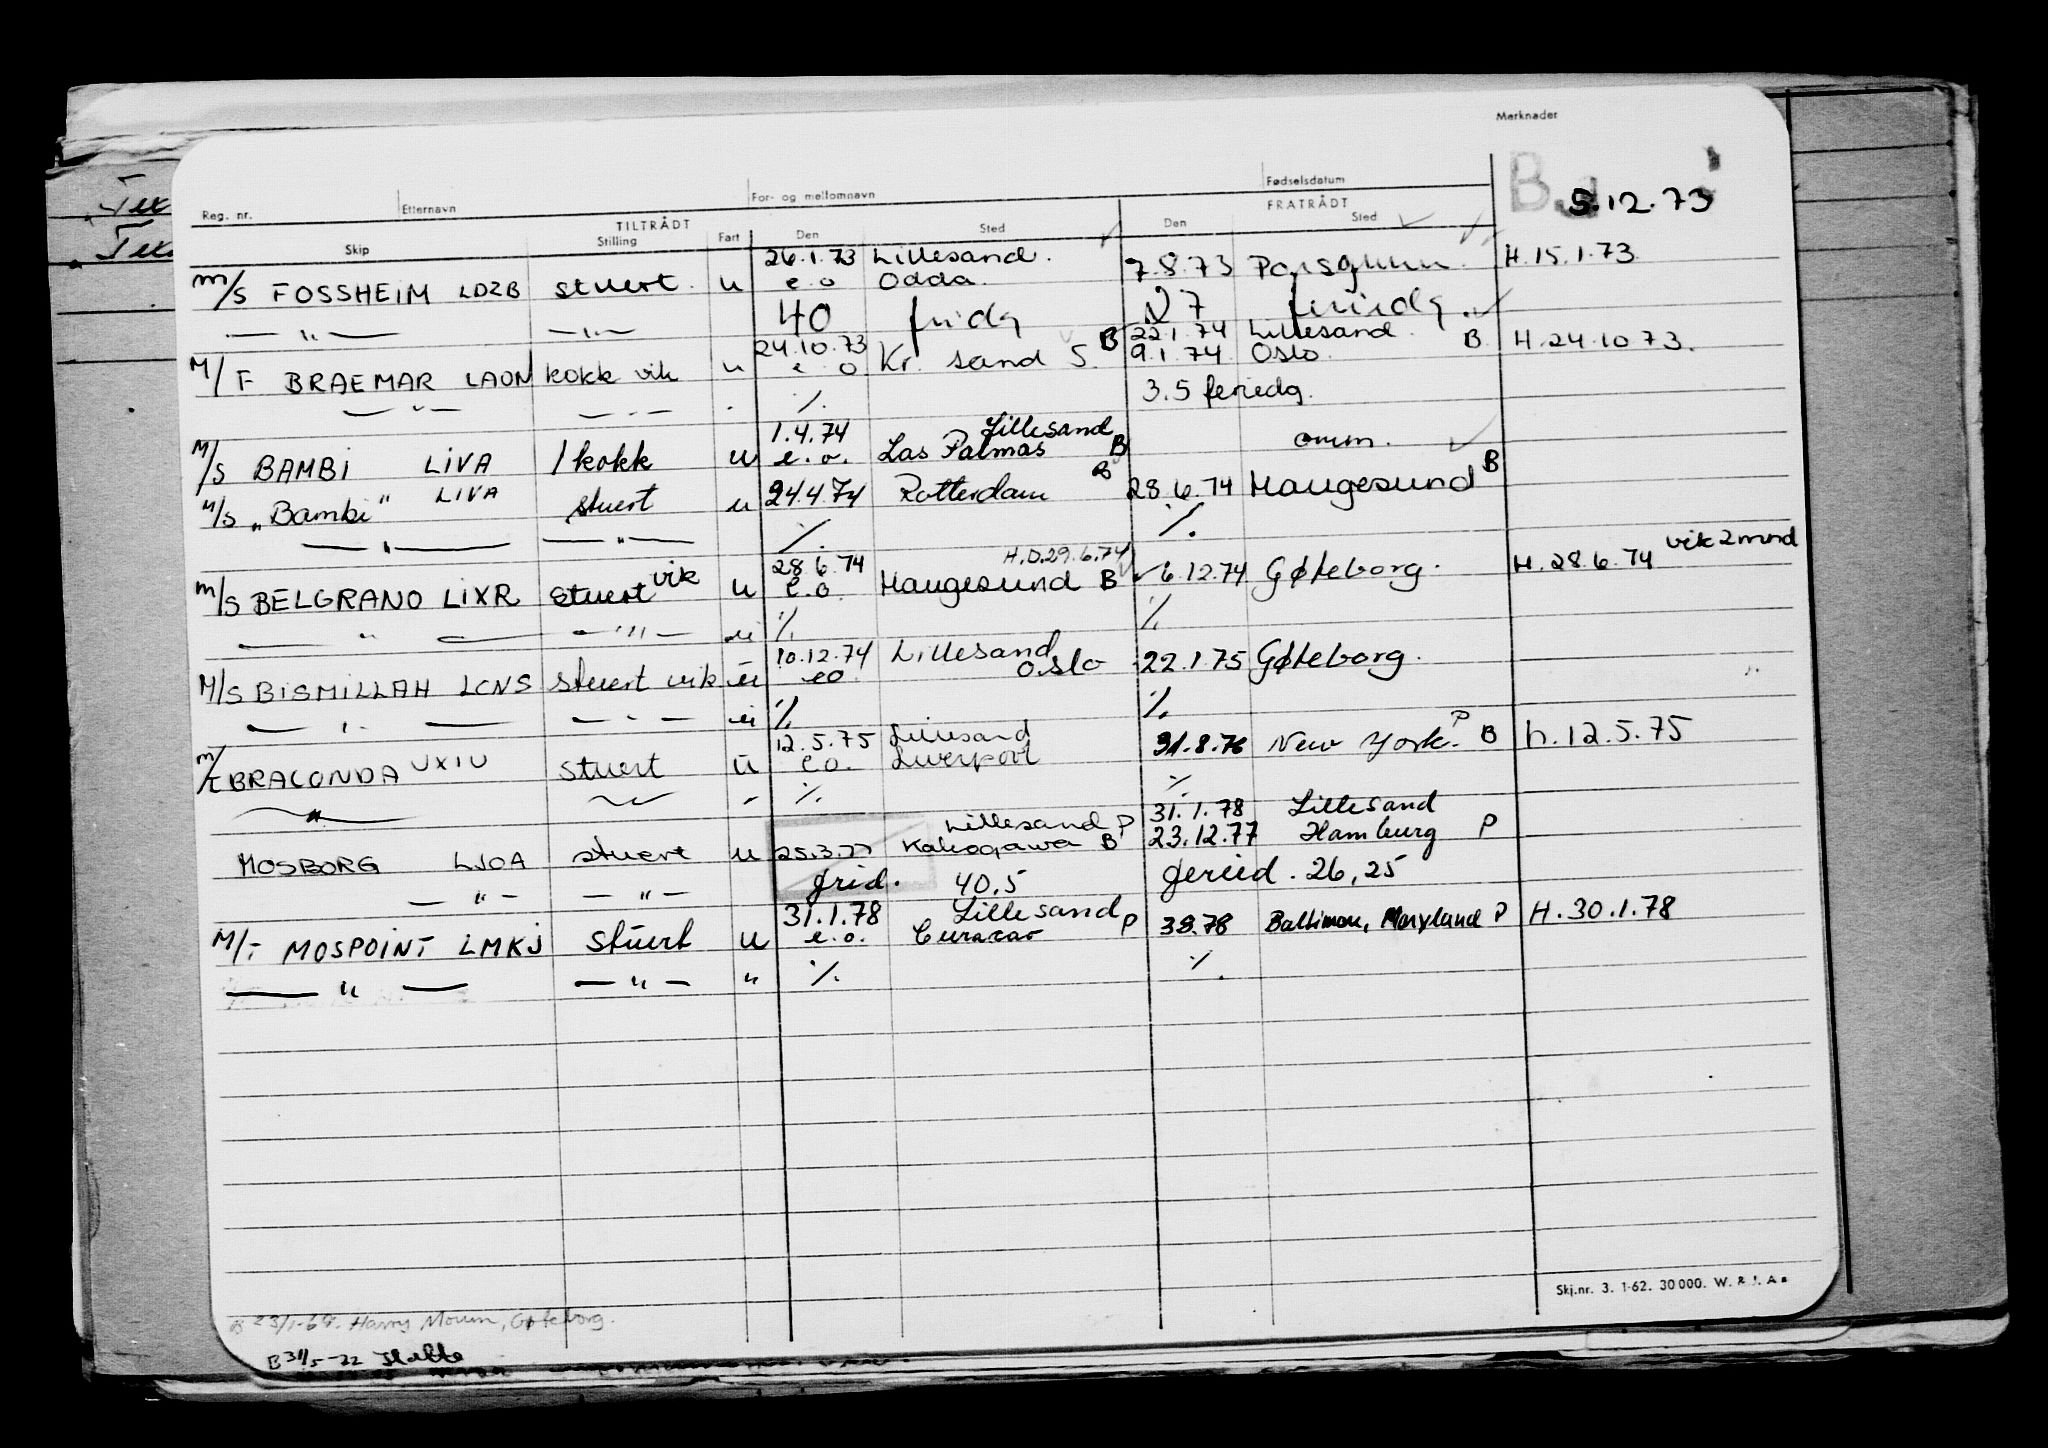 Merknader
Reg. nr. Etternavn For- og mellomnavn Fødselsdatum
B. 5.12.73
TILTRÅDT FRATRÅDT
Skip Stilling Fart Den Sted Den Sted
26.1.73 Lillesand.
M/S FOSSHEIM LDZB stuert. u e.o Odda. 7.8.73 Porsgrunn. H.15.1.73
— " — — " — 40 fridg 27 fridg
24.10.73 B 22.1.74 Lillesand. B
M/F BRAEMAR LAON kokk vik u e.o Kr. sand S. 9.1.74 Oslo. H.24.10 73.
— " — — " — ./. 3.5 feriedg.
1.4.74 Lillesand
M/S BAMBI LIVA 1 kokk u e.o. Las Palmas B omm.
M/S „Bambi" LIVA stuert u 24.4.74 Rotterdam B 28.6.74 Haugesund B
— " — — " — ./. ./.
28.6.74 H.D.29.6.74
M/S BELGRANO LIXR stuert vik u e.o. Haugesund B 6.12.74 Gøteborg. H.28.6.74 vik 2 mnd
— " — — " — u ./. ./.
10.12.74 Lillesand
M/S BISMILLAH LCNS stuert vik u eo Oslo 22.1.75 Gøteborg.
— " — — " — u ./. ./.
12.5.75 Lillesand
M/T BRALONDA UXIU stuert u e.o. Liverpool 31.8.76 New York. P B h.12.5.75
" ./. ./.
Lillesand P 31.1.78 Lillesand
MOSBORG LJOA stuert u 25.3.77 Kakogawa B 23.12.77 Hamburg P
— " — — " — frid. 40.5 feried. 26,25
31.1.78 Lillesand
M/T MOSPOINT LMKJ stuert u e.o. Curacao P 3.8.78 Baltimore, Maryland P H.30.1.78
— " — — " — " ./. ./.
Skj.nr. 3. 1-62. 30000. W.
B 23/1-69. Harry Moum, Gøteborg.
B 31/5-72